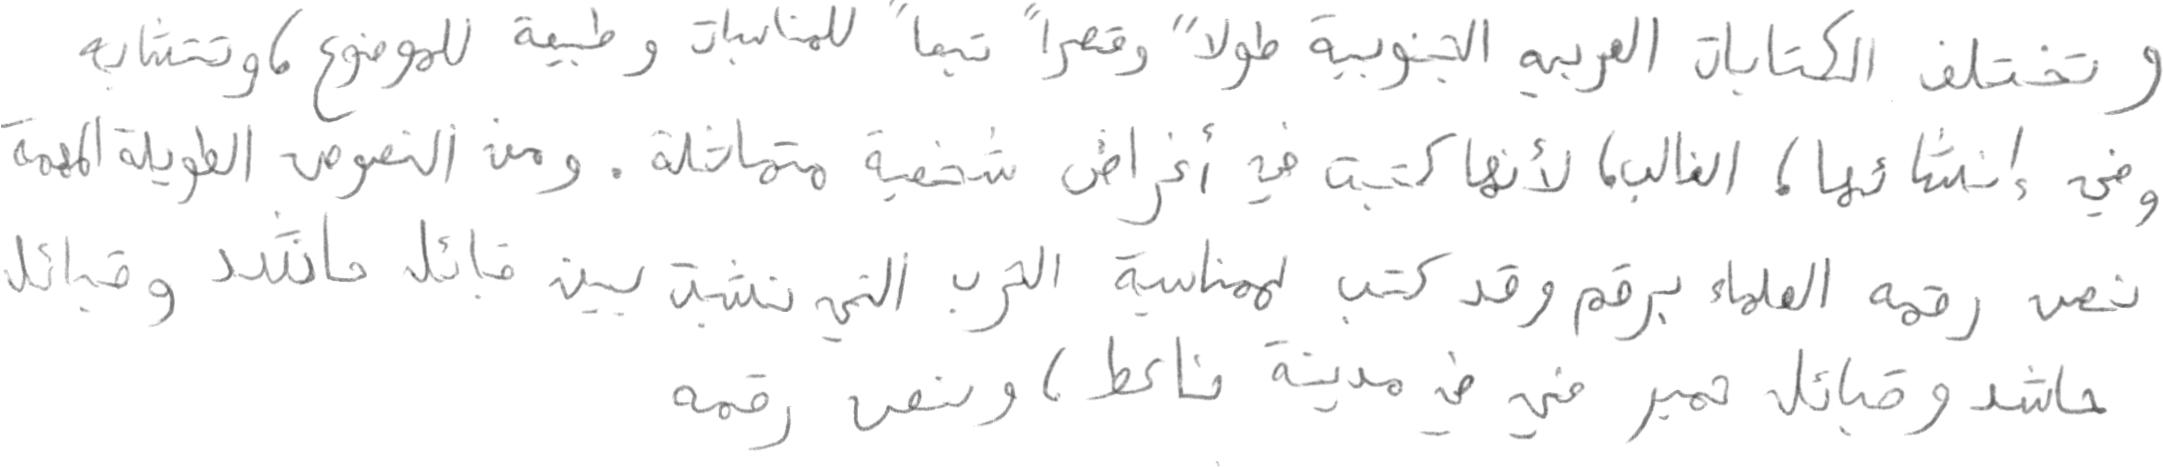 وتختلف الكتابات العربيه الجنوبية طولا" وقصرا" تبعا" للمناسبات وطبيعة للموضوع، وتتشابه
وفي إنشائها، الغالب، لأنها كتبت في أغراض شخصية متماثلة. ومن النصوص الطويلة المهمة
نص رقمه العلماء برقم وقد كتب لمناسبة الحرب التي نشبت بين قبائل حاشد وقبائل
حاشد وقبائل حمير في في مدينة ناعط، ونص رقمه